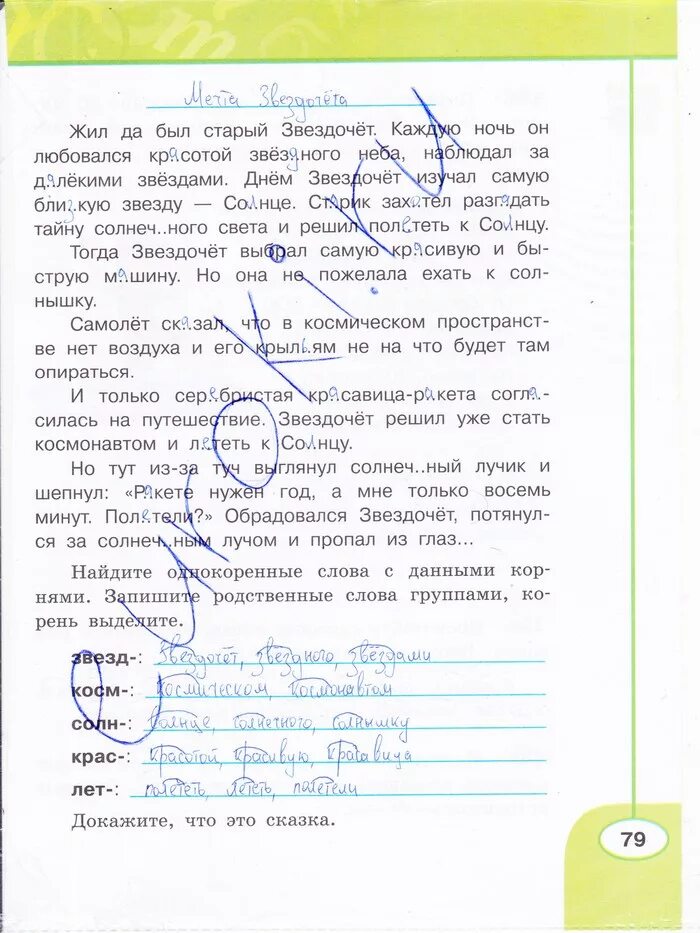 Мечта Звездочёта
Жил да был старый Звездочёт. Каждую ночь он
любовался красотой звёздного неба, наблюдал за
далёкими звёздами. Днём Звездочёт изучал самую
близкую звезду — Солнце. Старик захотел разгадать
тайну солнеч..ного света и решил полететь к Солнцу.
Тогда Звездочёт выбрал самую красивую и бы-
струю машину. Но она не пожелала ехать к сол-
нышку.
Самолёт сказал, что в космическом пространст-
ве нет воздуха и его крыльям не на что будет там
опираться.
И только серебристая красавица-ракета согла-
силась на путешествие. Звездочёт решил уже стать
космонавтом и лететь к Солнцу.
Но тут из-за туч выглянул солнеч..ный лучик и
шепнул: «Ракете нужен год, а мне только восемь
минут. Полетели?» Обрадовался Звездочёт, потянул-
ся за солнеч..ным лучом и пропал из глаз...
Найдите однокоренные слова с данными кор-
нями. Запишите родственные слова группами, ко-
рень выделите.
звезд-: Звездочёт, звёздного, звёздами
косм-: космическом, космонавтом
солн-: солнце, солнечного, солнышку
крас-: красотой, красивую, красавица
лет-: полететь, лететь, полетели
Докажите, что это сказка.
79
uroki.ru